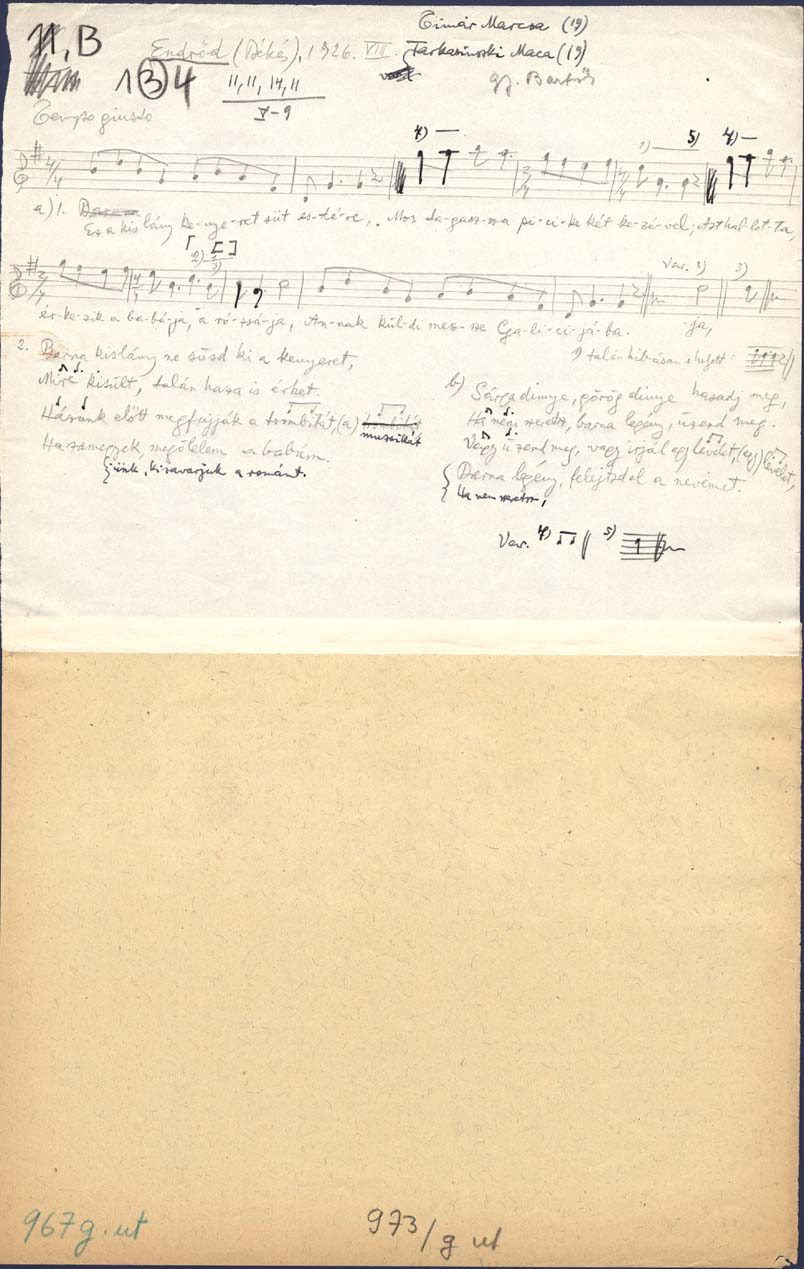 11, B
Endrőd (Békés), 1926. VIII.
Timár Marcsa (19)
Tarkasinszki Maca (19)
gy. Bartók
1 B 4
11, 11, 14, 11
V-9
Tempo giusto
4)
1)
5)
4)
4/4
3/4
4/4
a) 1. Ez a kis lány ke-nye-ret süt es-té-re, Mos da-gasz-sza pi-ci-ke két ke-zé-vel; Azt hal-lot-ta,
Var. 2) 3)
3/4
ér-ke-zik a ba-bá-ja, a ró-zsá-ja, An-nak kül-di mesz-sze Ga-li-ci-já-ba. -ja,
1) talán hibásan ehelyett:
2. Barna kislány ne süsd ki a kenyeret,
Mire kisült, talán haza is érhet.
Házunk előtt megfújják a trombitát, (a)
muzsikát
Hazamegyek, megölelem a babám.
jünk, kizavarjuk a románt.
b) Sárga dinnye, görög dinye hasadj meg,
Ha nem szeretsz, barna legény, üzend meg.
Vagy üzend meg, vagy irjál egy levelet, (egy) levelet,
Barna legény, felejtsd el a nevemet.
Ha nem szeretsz,
Var. 4) 5)
967 g. ut
973/g ut